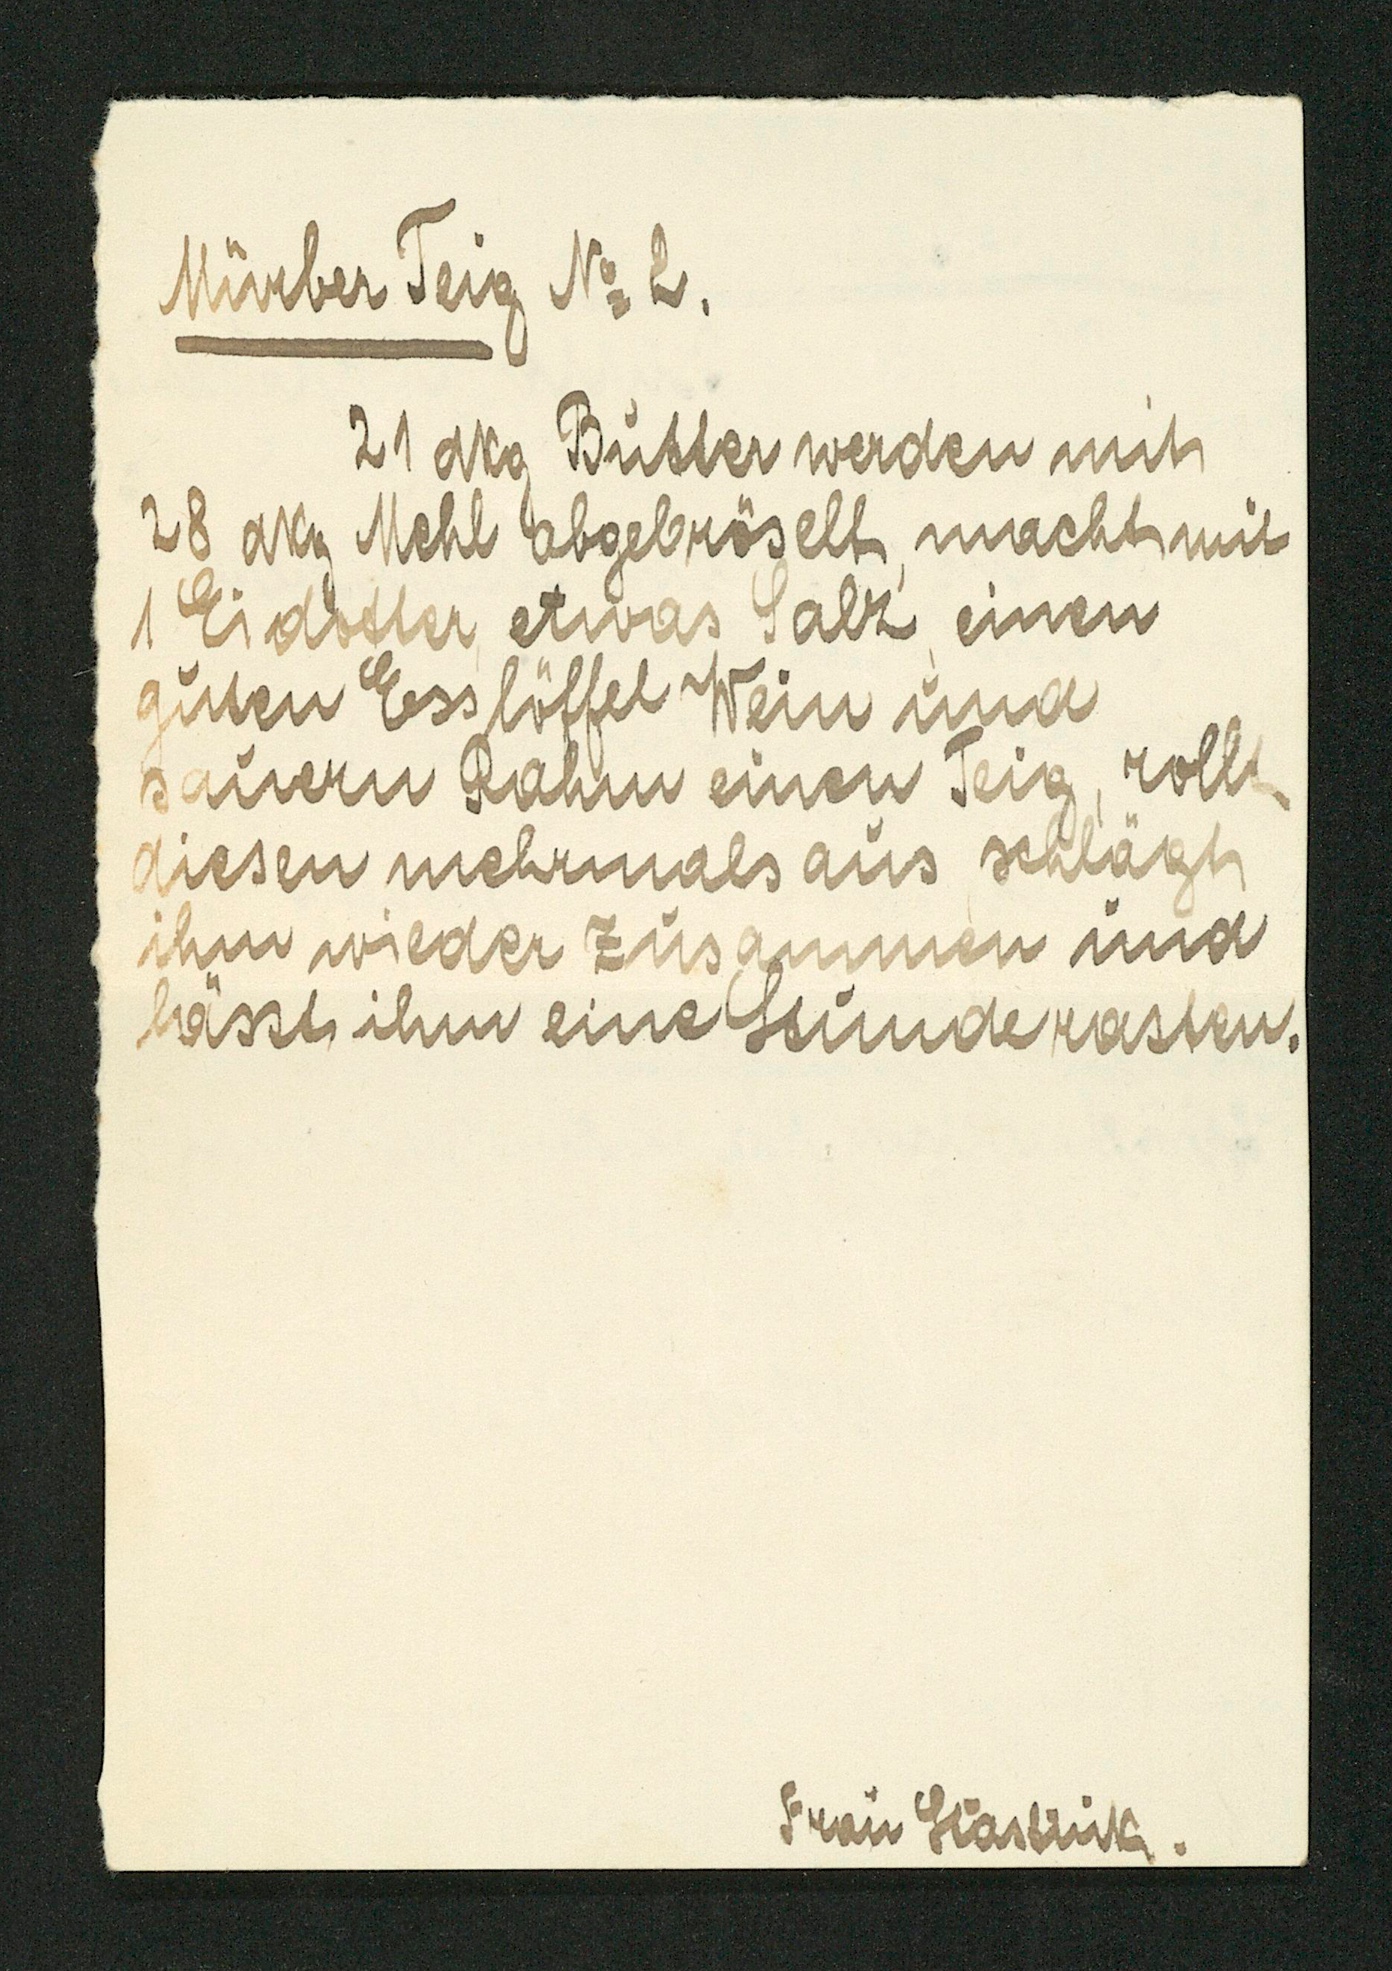 Mürber Teig No 2.
21 dkg Butter werden mit
28 dkg Mehl abgebröselt, macht mit
1 Eidotter, etwas Salz, einen
guten Esslöffel Wein und
sauern Rahm einen Teig, rollt
diesen mehrmals aus, schlägt
ihn wieder zusammen und
lässt ihn eine Stunde rasten.
Frau